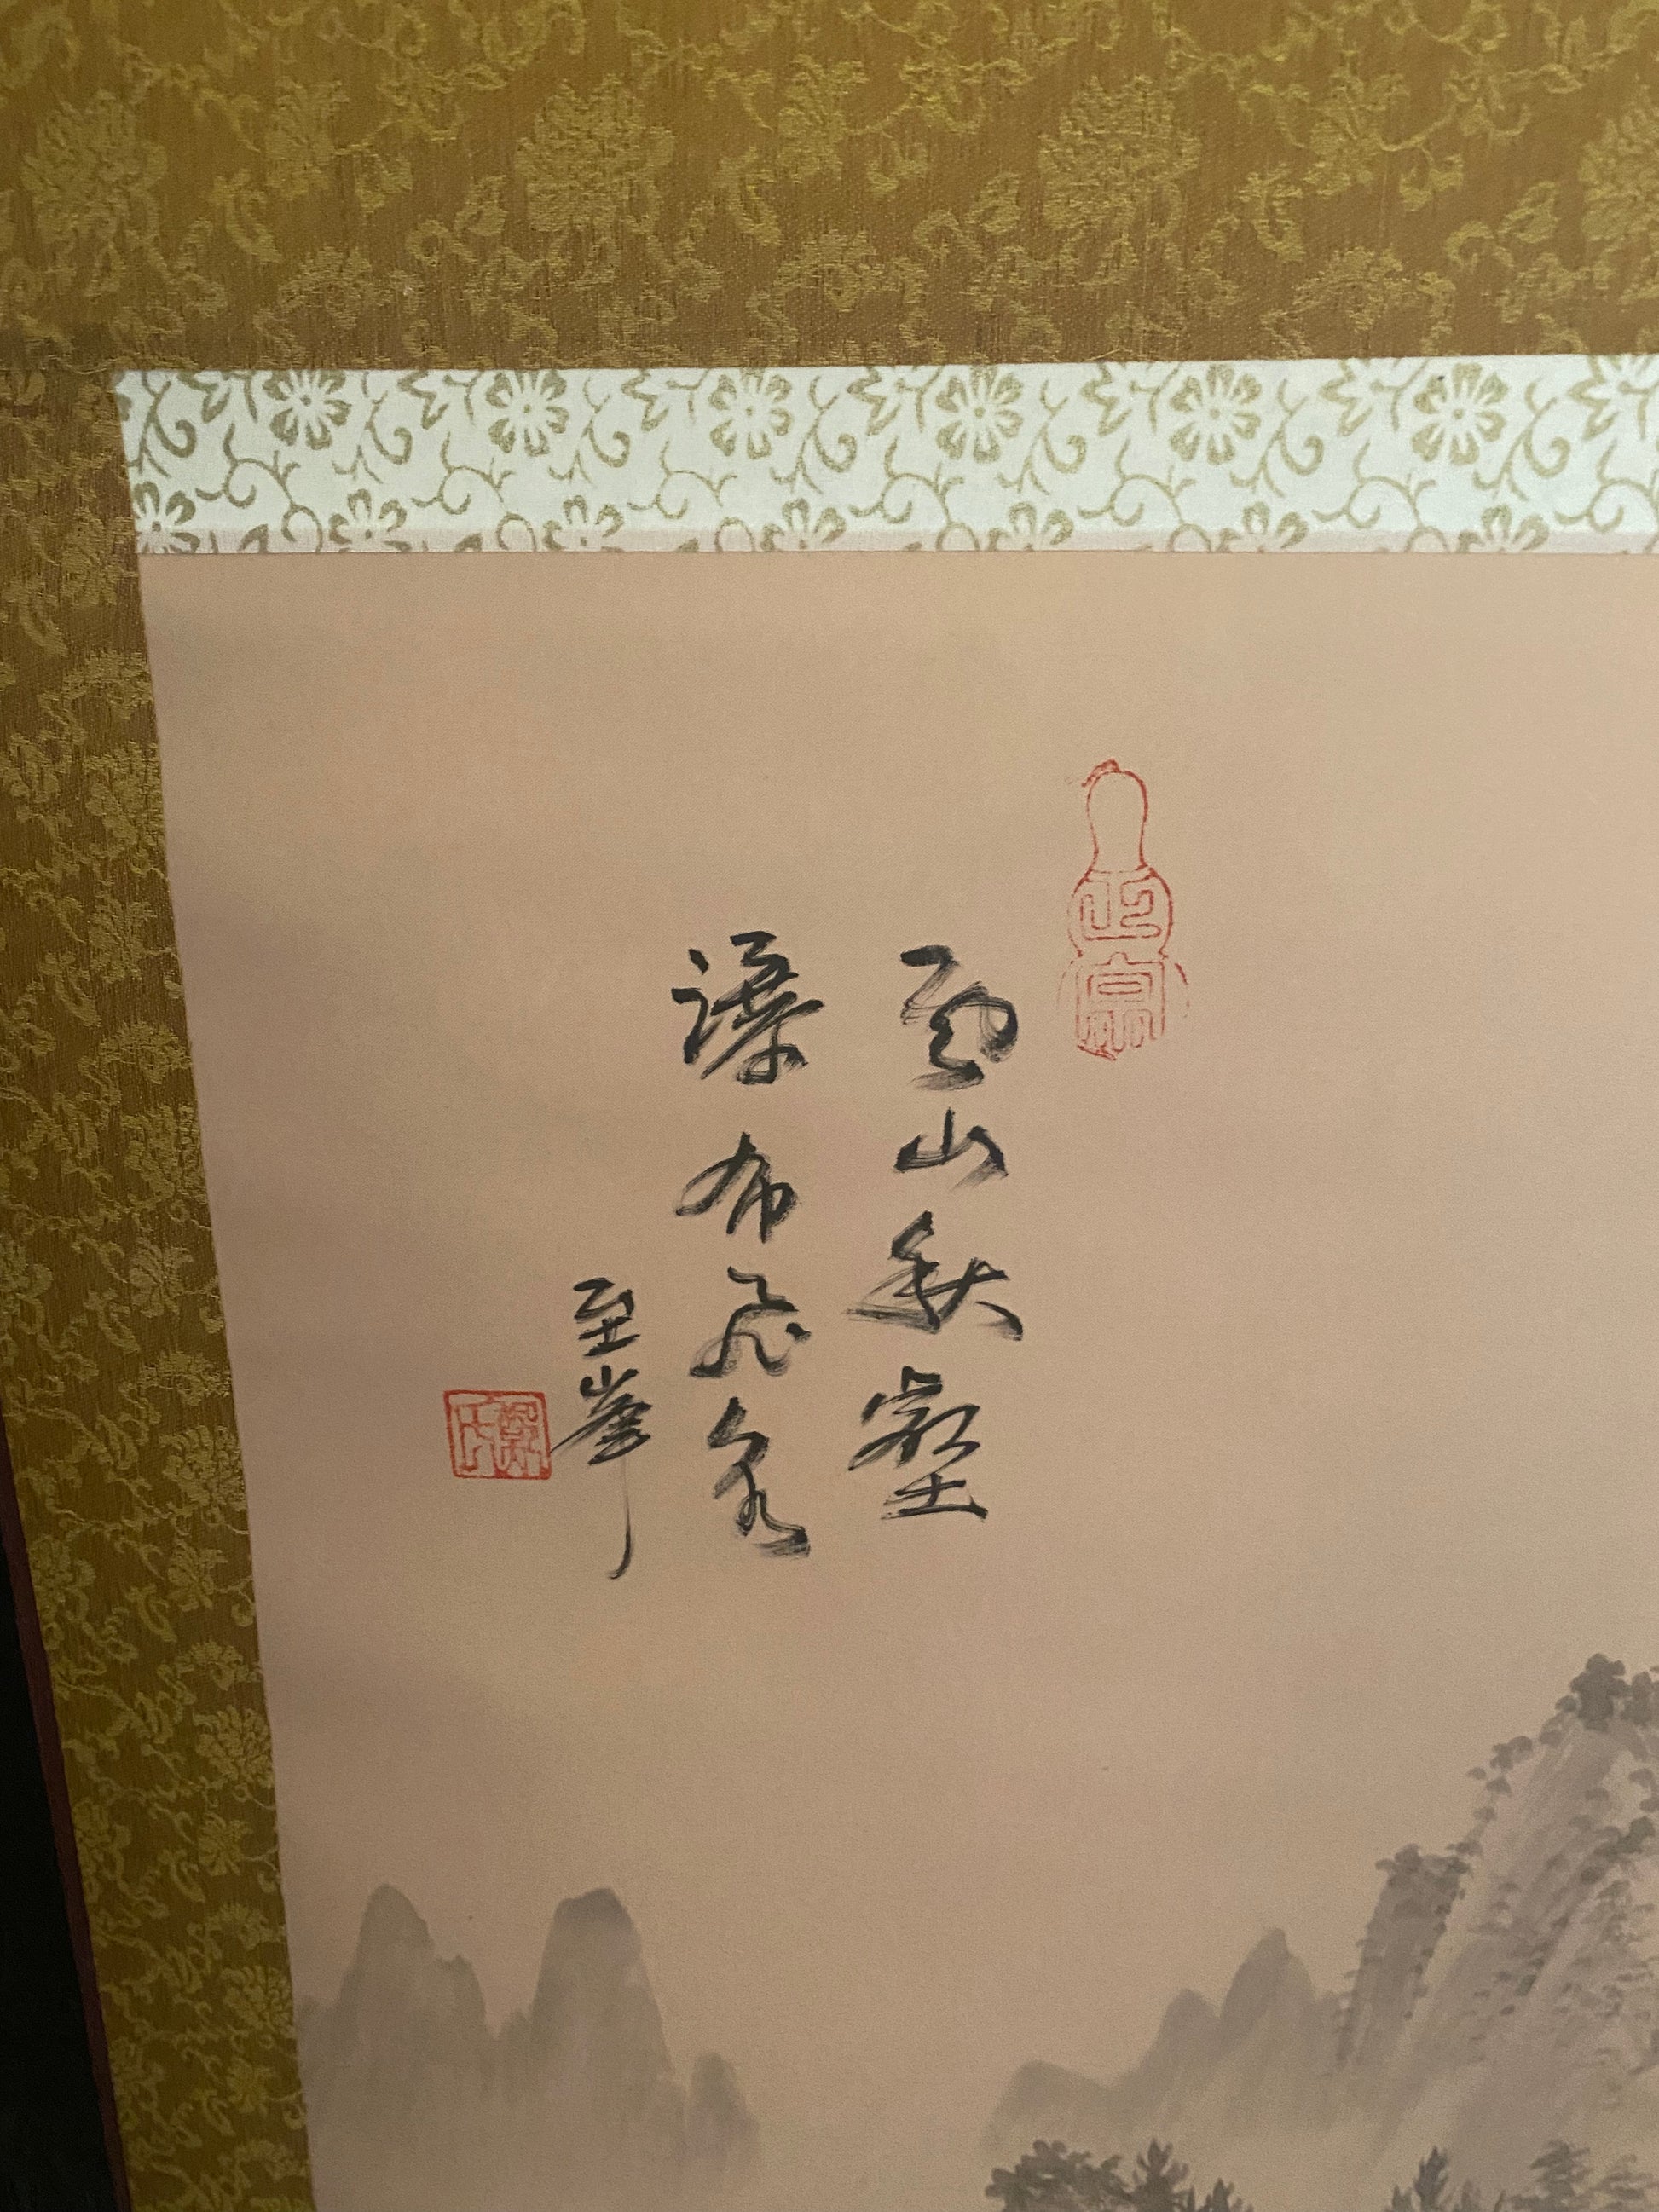 雲山秋壑
瀑布飛泉
至峯